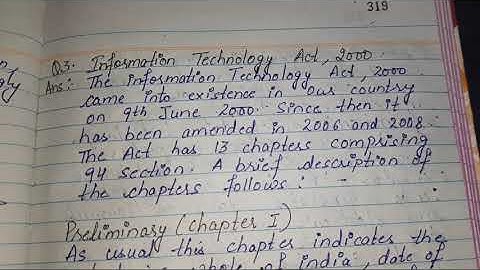 319
Q.3. Information Technology Act, 2000.
Ans:- The information Technology Act, 2000
came into existence in our country
on 9th June 2000. Since then it
has been amended in 2006 and 2008.
The Act has 13 chapters comprising
94 section. A brief description of
the chapters follows: -
Preliminary (chapter I)
As usual this chapter indicates the
whole of india, date of